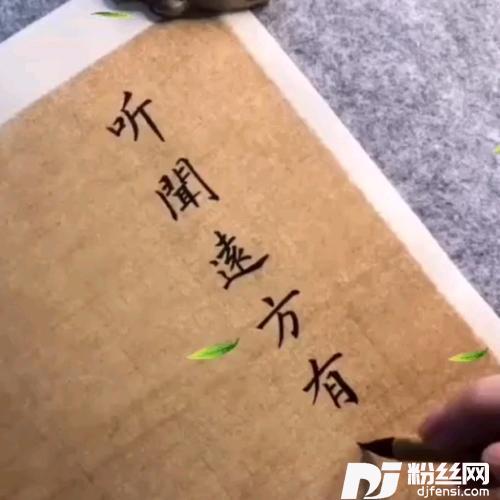 听聞遠方有
DJ 粉丝网
djfensi.com